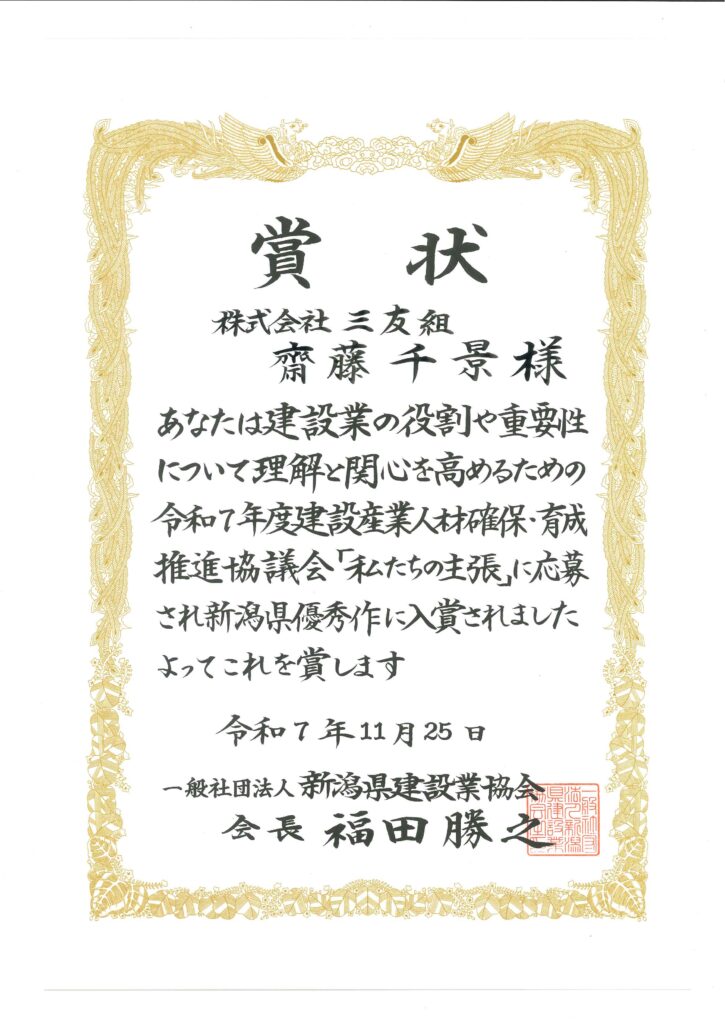 賞状
株式会社 三友組
齋藤千景様
あなたは建設業の役割や重要性
について理解と関心を高めるための
令和7年度建設産業人材確保・育成
推進協議会「私たちの主張」に応募
され新潟県優秀作に入賞されました
よってこれを賞します
令和7年11月25日
一般社団法人 新潟県建設業協会
会長 福田勝之